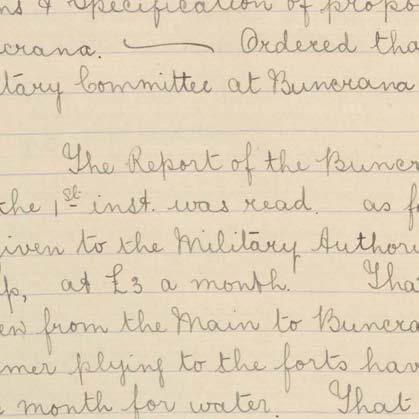 ns & Specification of propo
crana. — Ordered tha
itary Committee at Buncrana
The Report of the Buncr
the 1st inst. was read. as fo
given to the Military Authori
up, at £3 a month. That
en from the Main to Buncra
mer plying to the forts hav
e month for water. That